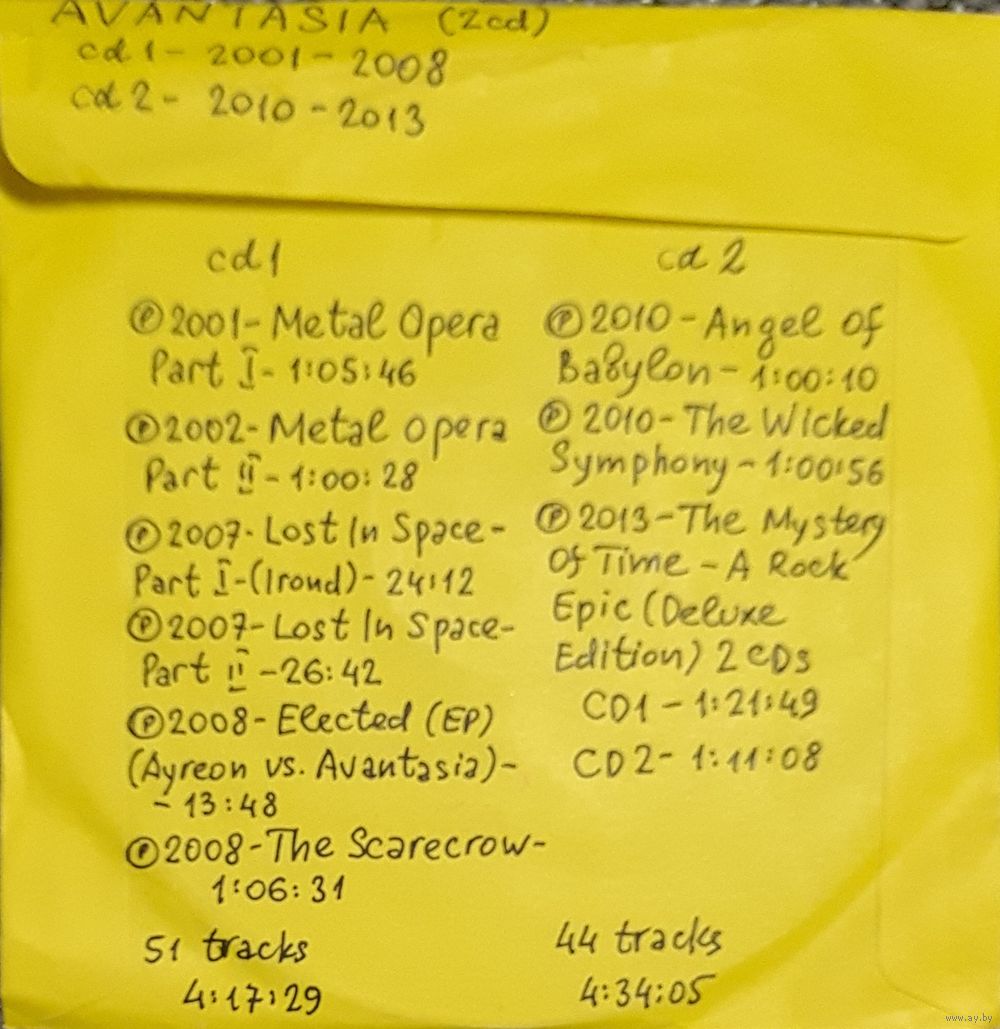 AVANTASIA (2cd)
cd1 - 2001 - 2008
cd2 - 2010 - 2013
cd1
Ⓟ2001 - Metal Opera
Part I - 1:05:46
Ⓟ2002 - Metal opera
Part II - 1:00:28
Ⓟ2007 - Lost In Space -
Part I - (Irond) - 24:12
Ⓟ2007 - Lost In Space -
Part II - 26:42
Ⓟ2008 - Elected (EP)
(Ayreon vs. Avantasia) -
- 13:48
Ⓟ2008 - The Scarecrow -
1:06:31
51 tracks
4:17:29
cd 2
Ⓟ2010 - Angel Of
Babylon - 1:00:10
Ⓟ2010 - The Wicked
Symphony - 1:00:56
Ⓟ2013 - The Mystery
Of Time - A Rock
Epic (Deluxe
Edition) 2 CDs
CD1 - 1:21:49
CD2 - 1:11:08
44 tracks
4:34:05
www.ay.by